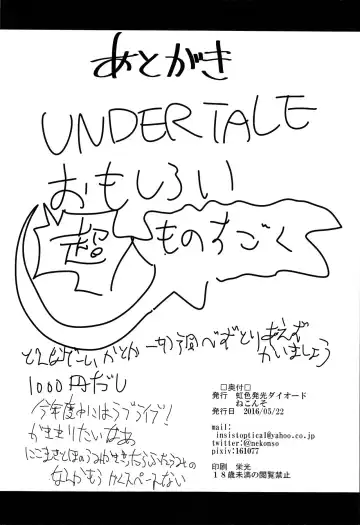 あとがき
UNDERTALE
おもしろい
超
ものすごく
どんなゲームかとか一切調べずとりあえず
かいましょう
1000円だし
今年度中にはラブライブ!
がきまりたいなあ
□奥付□
発行 虹色発光ダイオード
ねこんそ
発行日 2016/05/22
mail:
insistoptical@yahoo.co.jp
twitter:@nekonso
pixiv:161077
印刷 栄光
18歳未満の閲覧禁止